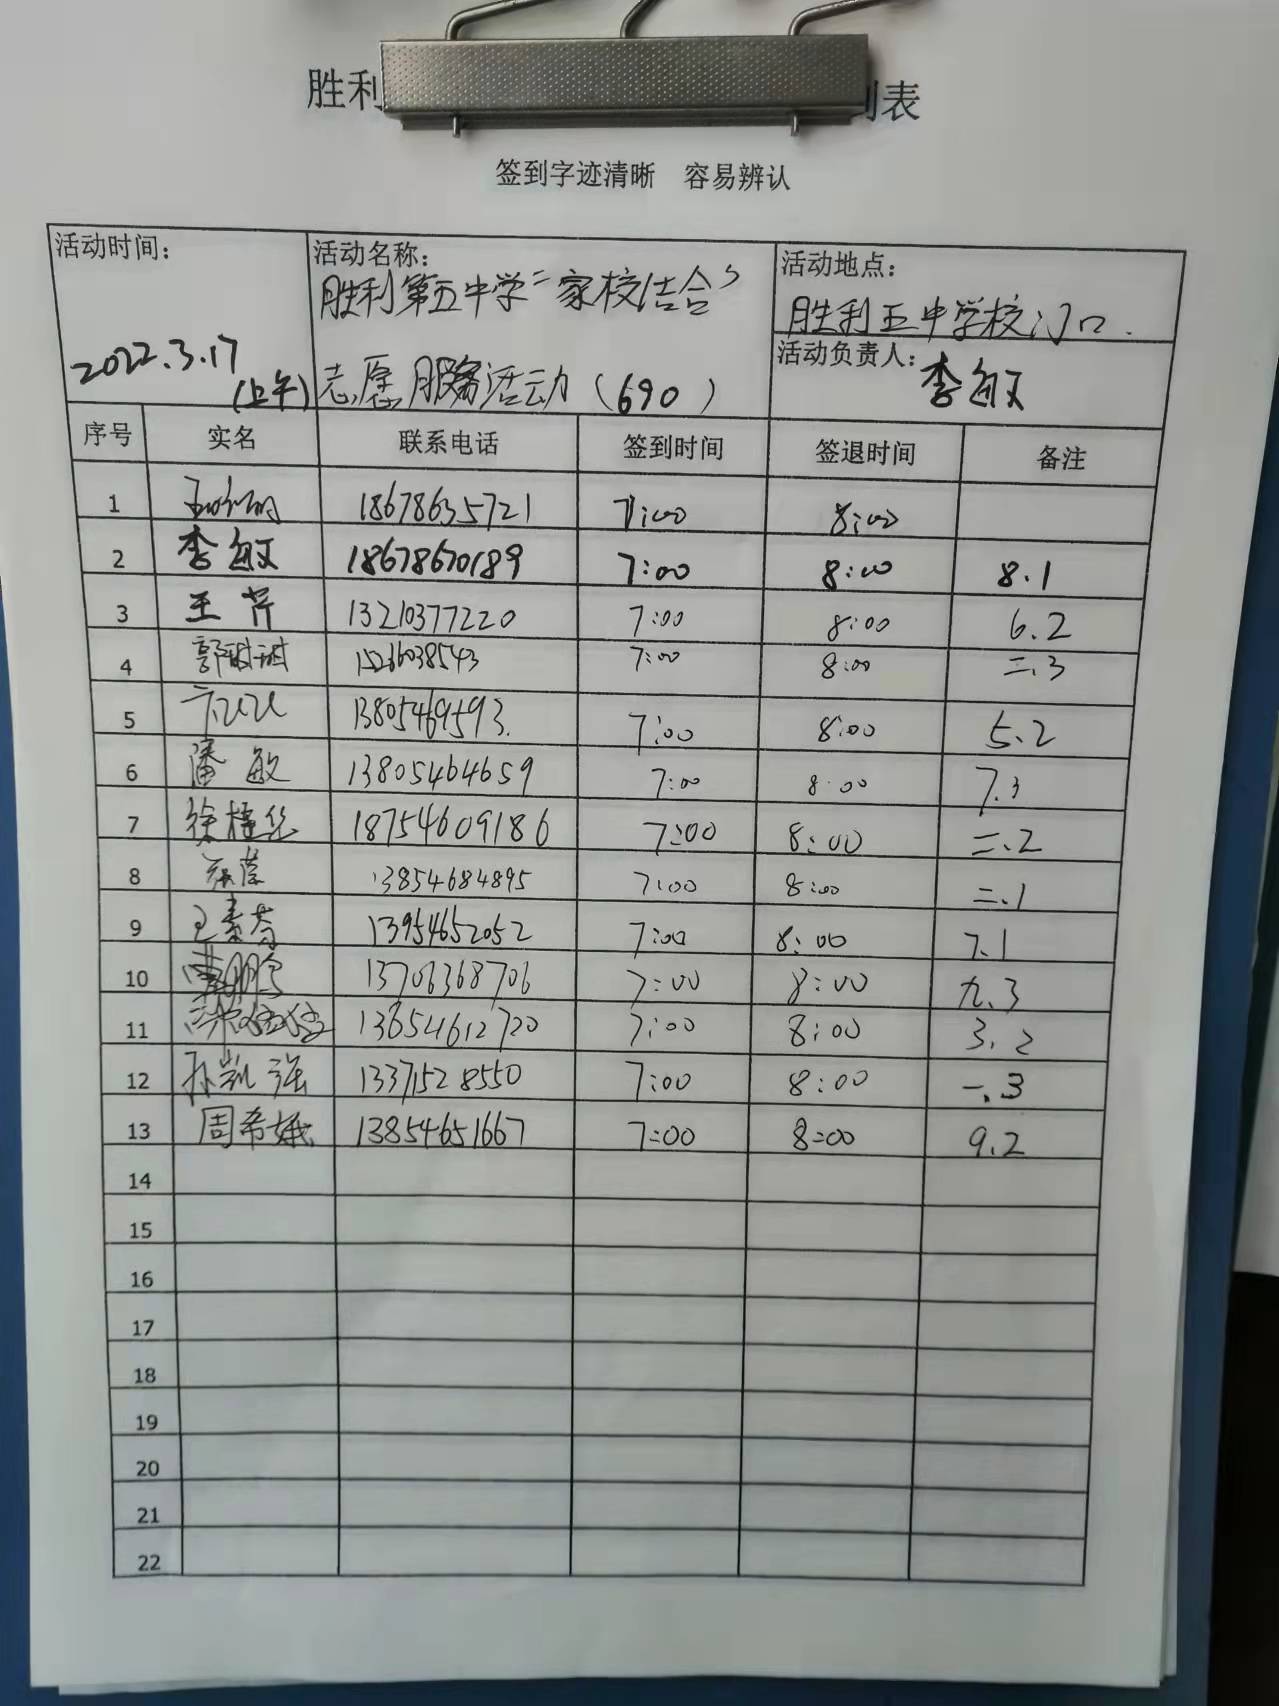 胜利 到表
签到字迹清晰 容易辨认
活动时间: 2022.3.17 (上午)
活动名称: 胜利第五中学“家校结合”
志愿服务活动(690)
活动地点: 胜利五中学校门口.
活动负责人: 李敏
序号 实名 联系电话 签到时间 签退时间 备注
1 18678635721 7:00 8:00
2 李敏 18678670189 7:00 8:00 8.1
3 王芹 13210377220 7:00 8:00 6.2
4 郭 15266038543 7:00 8:00 二.3
5 13805469593. 7:00 8:00 5.2
6 潘敏 13805464659 7:00 8:00 7.3
7 徐桂华 18754609186 7:00 8:00 二.2
8 13854684895 7:00 8:00 二.1
9 王素芳 13954652052 7:00 8:00 7.1
10 13706368706 7:00 8:00 九.3
11 13654612720 7:00 8:00 3.2
12 孙凯强 13371528550 7:00 8:00 一.3
13 周希娥 13854651667 7:00 8:00 9.2
14
15
16
17
18
19
20
21
22